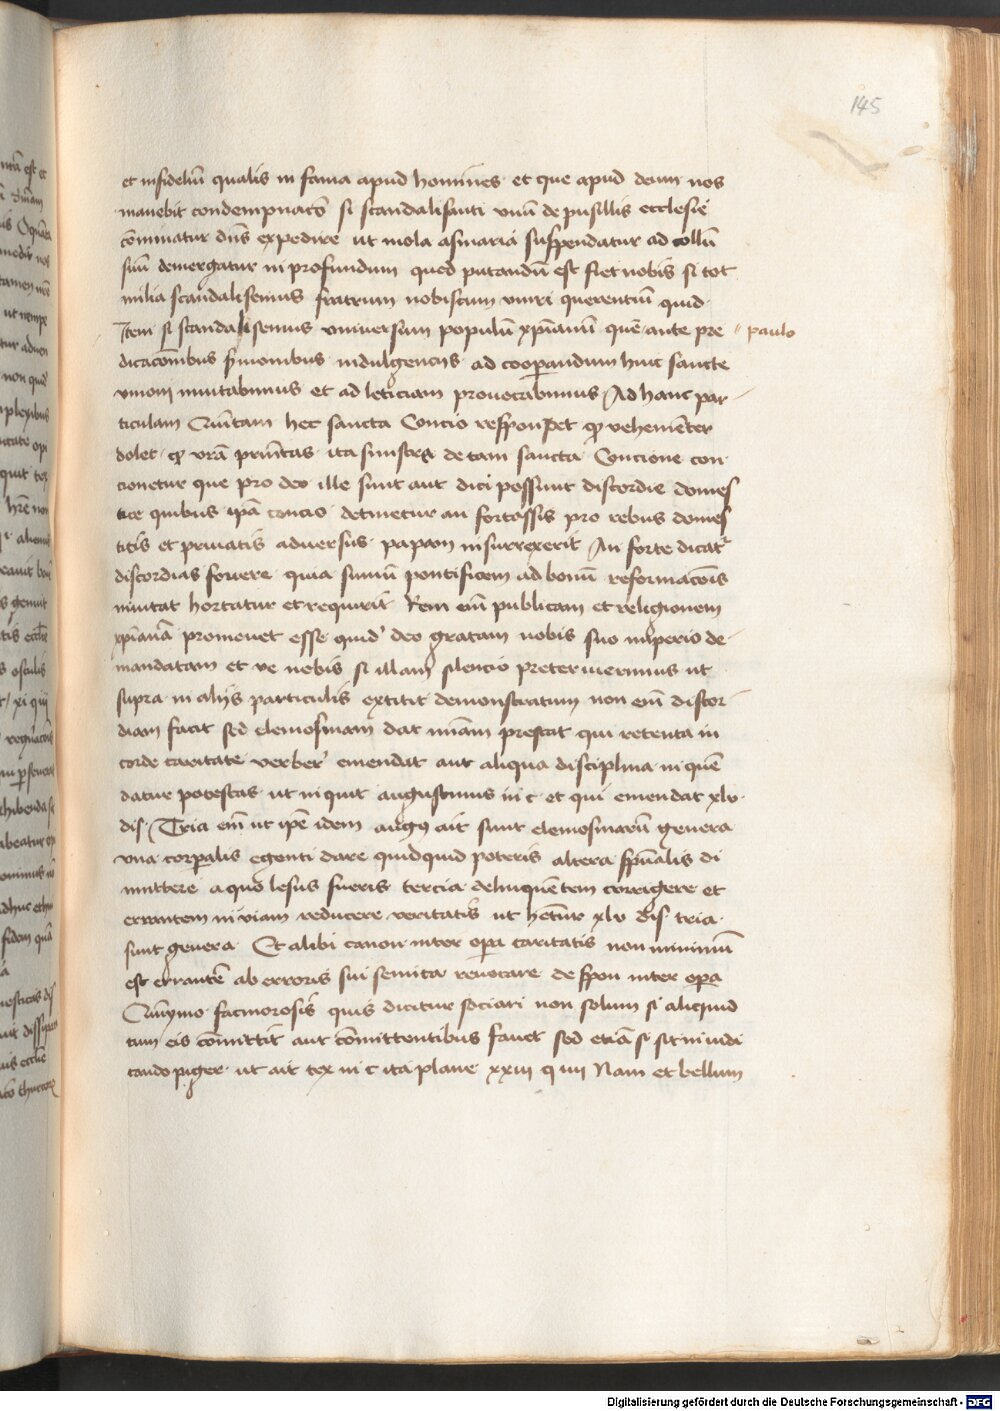 145
et infideliū qualis in fama apud homines et que apud deum nos
manebit condempnatō si scandalisanti vnū de pusillis ecclesie
cōminatur dn̄s expedire ut mola asinaria suspendatur ad collū
suū demergatur in profundum quid putandū est fiet nobis si tot
milia scandalisemus fratrum nobiscum vniri querentiū quid
Item si scandalisemus vniuersum populū xp̄ianū quē ante pre // paulo
dicacōnibus s̄monibus indulgencijs ad cooperandum huic sancte
vnioni inuitabimus et ad leticiam prouocabimus Ad hanc par-
ticulam Quintam hec sancta Concio respondet qꝫ vehemēter
dolet qꝫ vrā prīntas ita sinistre de tam sancta Concione con
cionetur que pro deo ille sunt aut dici possunt discordie domes
tice quibus ip̄a concio detinetur an fortassis pro rebus domes
ticis et priuatis aduersus papam insurrexerit An forte dicatr
discordias fouere quia summū pontificem ad bonū reformacōis
inuitat hortatur et requirit Rem em̄ publicam et religionem
xp̄ianā promouet esse quid deo gratam nobis suo imperio de-
mandatam et ve nobis si illam silencio preteriuerimus ut
supra in alijs particulis extitit demonstratum non em̄ discor-
diam facit sed elemosinam dat mīam prestat qui retenta in
corde caritate verber emendat aut aliqua disciplina in quē
datur potestas ut inquit augustinus in c et qui emendat xlv
dis Tria em̄ ut ip̄e idem augꝯ ait sunt elemosinarū genera
vna corporalis egenti dare quidquid poteris altera sp̄ualis di
mittere a quo lesus fueris tercia delinquētem corrigere et
errantem in viam reducere veritatis ut hētur xlv dis tria
sunt genera Et alibi canon inter opera caritatis non minimū
est errantē ab erroris sui semita reuocare de spon inter opera
Quinymo facinorosis quis dicitur sociari non solum si aliquid
cum eis cōmittit aut cōmittentibus fauet sed etiā si sit in iudi
cando piger ut ait tex in c ita plane xxiii q iiii Nam et bellum
Digitalisierung gefördert durch die Deutsche Forschungsgemeinschaft - DFG